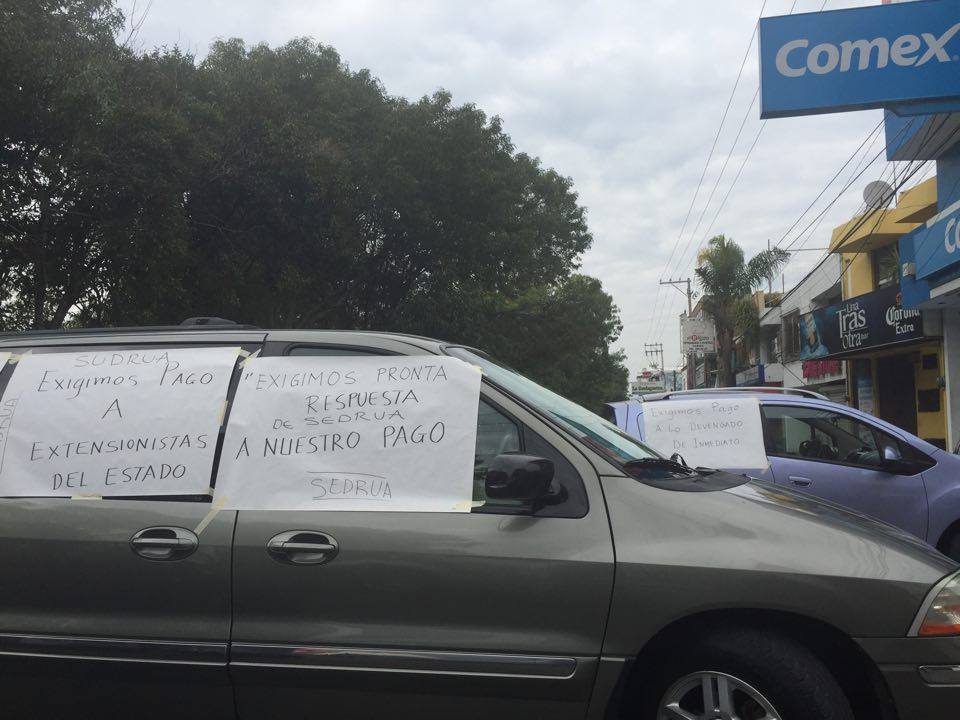 SUDRUA
Exigimos Pago
A
Extensionistas
del Estado
"Exigimos Pronta
Respuesta
de SEDRUA
A Nuestro Pago
SEDRUA
Exigimos Pago
a lo Devengado
De Inmediato
Comex
Una
Tras
Otra
Corona
Extra